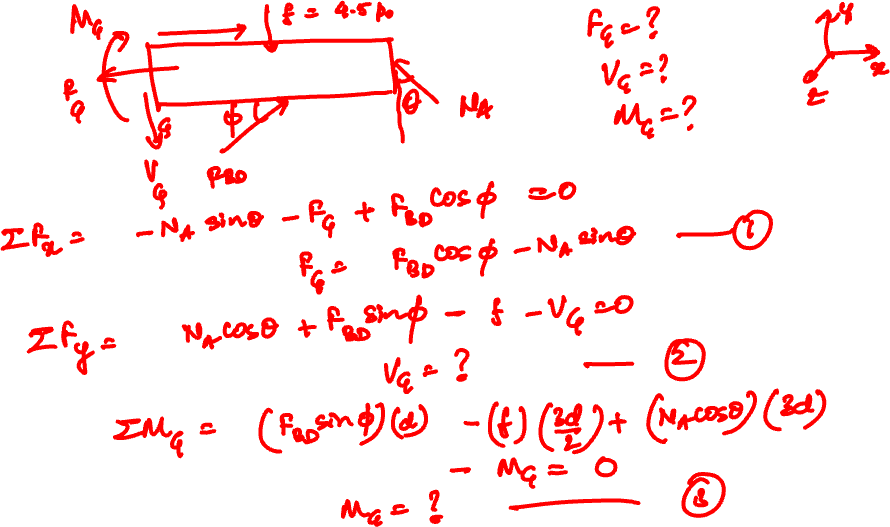 M_G f = 4.5 P₀ F_G = ? y
F_G V_G = ? x
G φ θ N_A M_G = ? z
V_G F_BD
ΣF_x = - N_A sinθ - F_G + F_BD cos φ = 0
F_G = F_BD cos φ - N_A sinθ —— ①
ΣF_y = N_A cosθ + F_BD sinφ - f - V_G = 0
V_G = ? — ②
ΣM_G = (F_BD sin φ)(d) - (f)(3d/2) + (N_A cosθ)(3d)
- M_G = 0
M_G = ? —— ③